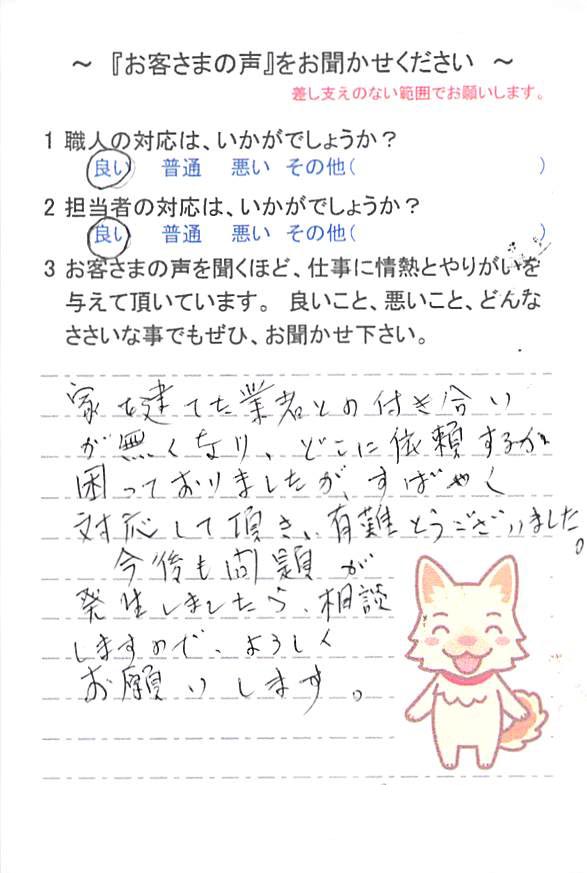 ～ 『お客さまの声』をお聞かせください ～
差し支えのない範囲でお願いします。
1 職人の対応は、いかがでしょうか？
良い 普通 悪い その他( )
2 担当者の対応は、いかがでしょうか？
良い 普通 悪い その他( )
3 お客さまの声を聞くほど、仕事に情熱とやりがいを
与えて頂いています。 良いこと、悪いこと、どんな
ささいな事でもぜひ、お聞かせ下さい。
家を建てた業者との付き合い
が無くなり、どこに依頼するか
困っておりましたが、すばやく
対応して頂き、有難とうございました。
今後も問題が
発生しましたら、相談
しますので、よろしく
お願いします。